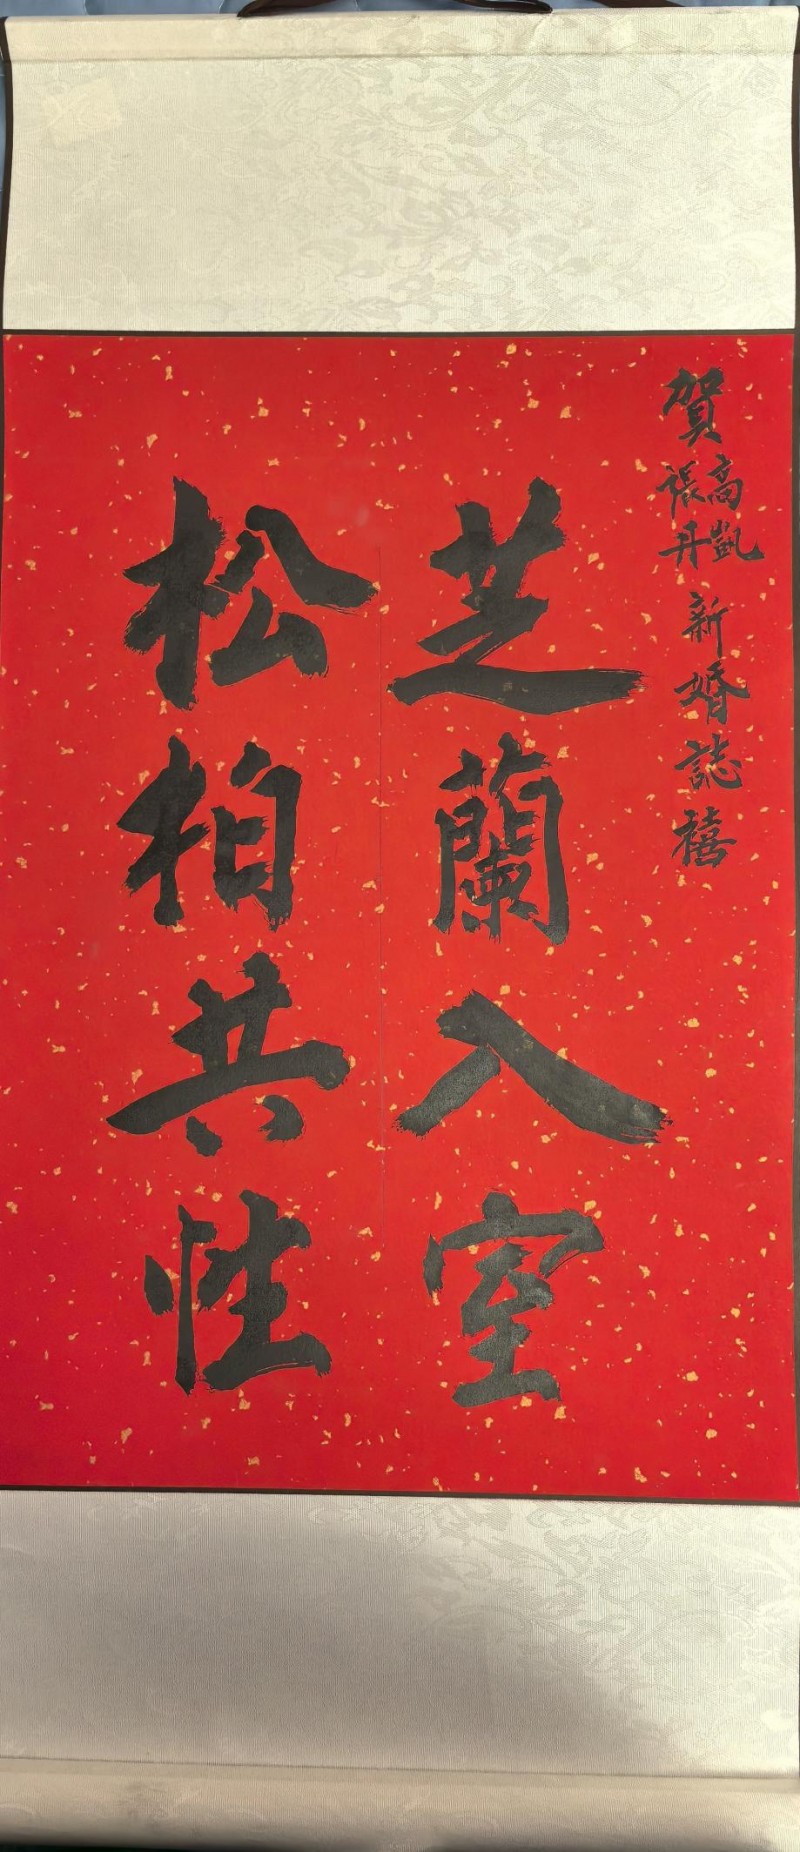 賀高凱張丹新婚誌禧
芝蘭入室
松柏共性